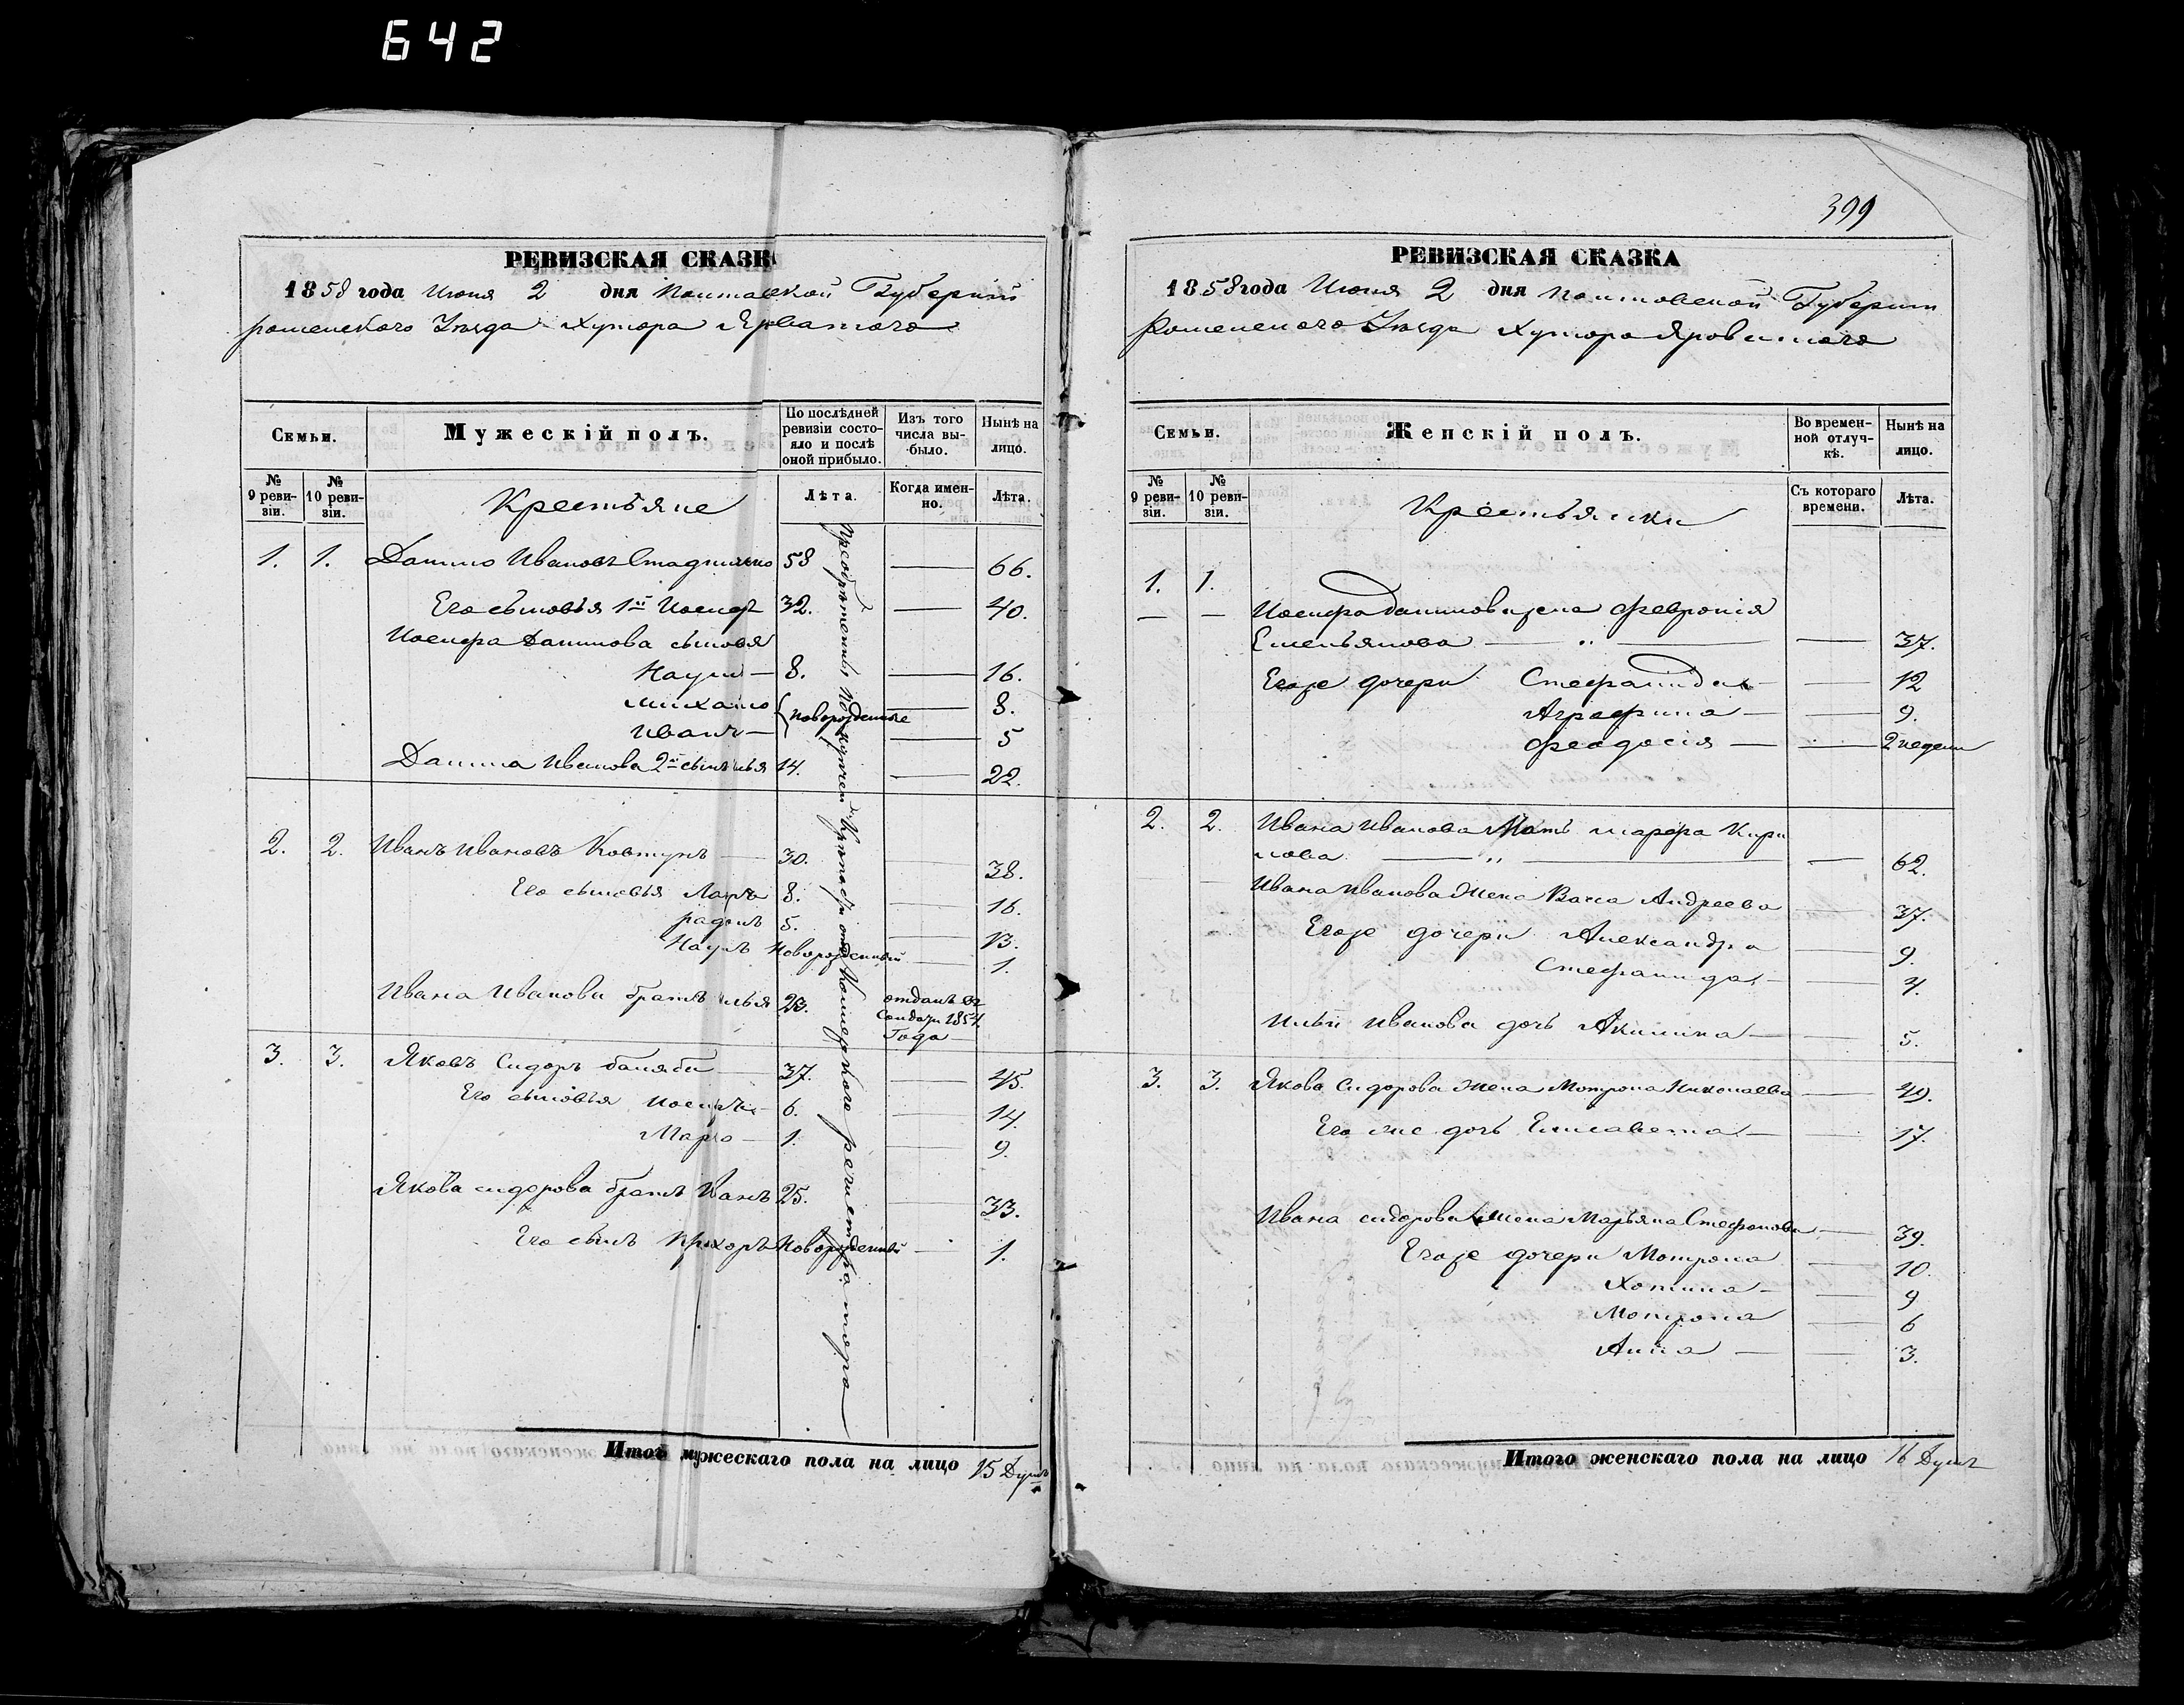 642
РЕВИЗСКАЯ СКАЗК
1858 года Июня 2 дня Полтавской Губернiи
роменского Уезда Хутора Ярватого
Семьи.
Мужескiй полъ.
По послѣдней ревизiи состо-
яло и послѣ
оной прибыло.
Изъ того
числа вы-
было.
Нынѣ на
лицо.
№
9 реви-
зiи.
№
10 реви-
зiи.
Крестьяне
Лѣта.
Когда имен-
но.
Лѣта.
1. 1. Данило Ивановъ 58 — 66.
Его сыновья 1й Иосиф 32. — 40.
Иосифа Данилова сыновья
Наум — 8. — 16.
Михайло — 8.
новорожденные
Иванъ — — 5
Данила Иванова 2й сынъ илья 14. — 22.
2. 2. Иванъ Ивановъ Ковтунъ — 30. — 38.
Его сыновья 8. — 16.
радонъ 5. — 13.
Наумъ Новорожденный — 1.
Ивана Иванова братъ илья 23. отданъ въ
Солдаты 1854.
Года
3. 3. Яковъ Сидоръ — 37. — 45.
Его сыновья Иосифъ — 6. — 14.
Марко — 1. — 9.
Якова сидорова братъ Иванъ 25. — 33.
Его сынъ Прохоръ Новорожденный — 1.
Прiобретены по купчей Крепости от Коллежского регистратора
Итого мужескаго пола на лицо 15 Душъ
399
РЕВИЗСКАЯ СКАЗКА
1858 года Июня 2 дня Полтовской Губернiи
Роменского Уезда Хутора Яроватого
Семьи.
Женскiй полъ.
Во времен-
ной отлуч-
кѣ.
Нынѣ на
лицо.
№
9 реви-
зiи.
№
10 реви-
зiи.
Крестьянки
Съ котораго
времени.
Лѣта.
1. 1.
— — Иосифа данилова жена Феврония
Емельянова — „ — — 37.
Егоже дочери Стефанида — — 12
Аграфина — — 9.
Феодосiя — — 2 недели
2. 2. Ивана Иванова Мать марфа Кири
лова — „ — — 62.
Ивана Иванова Жена Васса Андреева — 37.
Егоже дочери Александра — 9.
Стефанида — — 4.
Ильи Иванова дочь Акилина — — 5.
3. 3. Якова Сидорова Жена Мотрона Николаева — 49.
Его же дочь Елисавета — — 17.
Ивана сидорова Жена Марьяна Стефанова — 39.
Егоже дочери Мотрона — 10.
Хотина — — 9
Мотрона — 6
Анна — — 3.
Итого женскаго пола на лицо 16 Душъ